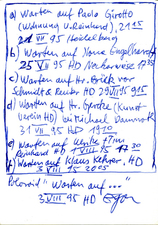 a) Warten auf Paolo Girotto
(Wohnung v. Reinhard), 21 15
24 VII 95 Heidelberg
b) Warten auf Hans Engelhardt
25 VII 95 HD Neckarwiese 17 35
c) Warten auf Hr. Brück vor
Schmidt & Reuter HD 29 VII 95 9 15
d) Warten auf Hr. Gercke (Kunst
verein HD) bei Michael
31 VII 95 HD 19 10
e) Warten auf + Tini
Reinhard HD 1 VIII 95 17 30
f) Warten auf Klaus Kehrer, HD
3 VIII 95 20 25
Polaroid "Warten auf..."
3 VIII 95 HD